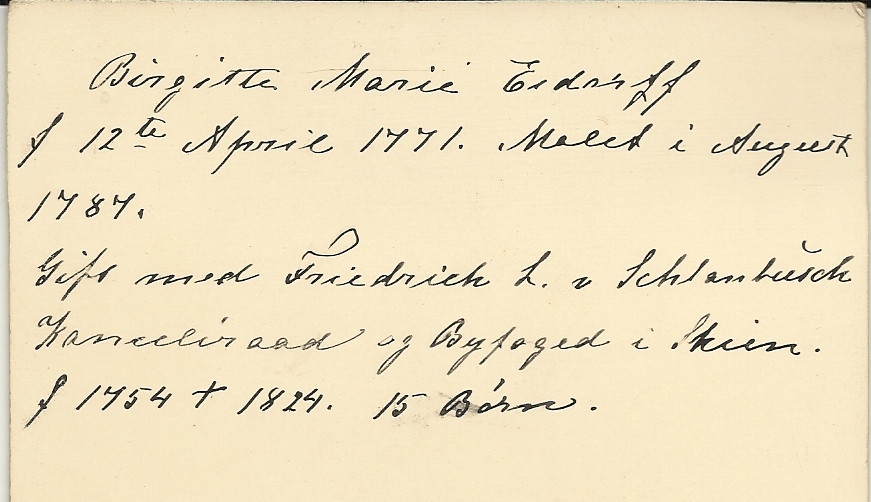 Birgitte Marie Esdorff
f 12te April 1771. Malet i August
1787.
Gift med Friedrich L. v Schlanbusch
Kanceliraad og Byfoged i Skien.
f 1754 + 1824. 15 Børn.